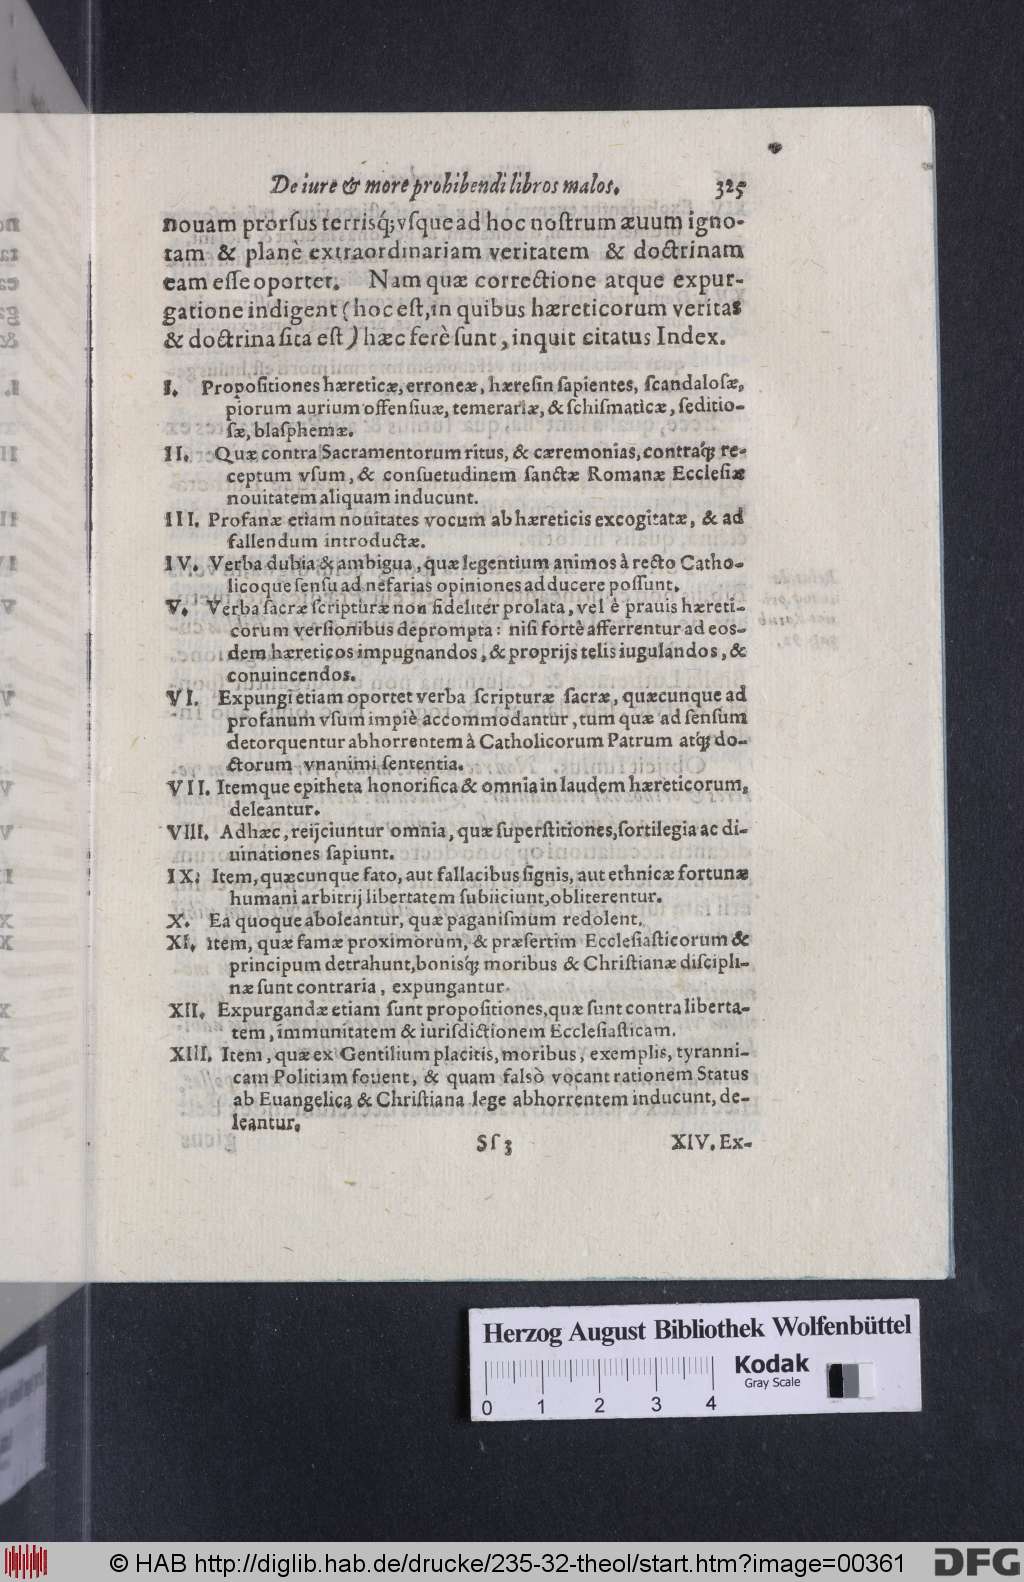 De iure & more prohibendi libros malos. 325
nouam prorſus terrisq́; vſque ad hoc noſtrum æuum igno-
tam & planè extraordinariam veritatem & doctrinam
eam eſſe oportet. Nam quæ correctione atque expur-
gatione indigent (hoc eſt, in quibus hæreticorum veritas
& doctrina ſita eſt) hæc ferè ſunt, inquit citatus Index.
I. Propoſitiones hæreticæ, erroneæ, hæreſin ſapientes, ſcandaloſæ,
piorum aurium offenſiuæ, temerariæ, & ſchiſmaticæ, ſeditio-
ſæ, blaſphemæ.
II. Quæ contra Sacramentorum ritus, & cæremonias, contraq́; re-
ceptum vſum, & conſuetudinem ſanctæ Romanæ Eccleſiæ
nouitatem aliquam inducunt.
III. Profanæ etiam nouitates vocum ab hæreticis excogitatæ, & ad
fallendum introductæ.
IV. Verba dubia & ambigua, quæ legentium animos à recto Catho-
licoque ſenſu ad nefarias opiniones adducere poſſunt.
V. Verba ſacræ ſcripturæ non fideliter prolata, vel è prauis hæreti-
corum verſionibus deprompta: niſi fortè afferrentur ad eos-
dem hæreticos impugnandos, & proprijs telis iugulandos, &
conuincendos.
VI. Expungi etiam oportet verba ſcripturæ ſacræ, quæcunque ad
profanum vſum impiè accommodantur, tum quæ ad ſenſum
detorquentur abhorrentem à Catholicorum Patrum atq́; do-
ctorum vnanimi ſententia.
VII. Itemque epitheta honorifica & omnia in laudem hæreticorum,
deleantur.
VIII. Adhæc, reijciuntur omnia, quæ ſuperſtitiones, ſortilegia ac di-
uinationes ſapiunt.
IX. Item, quæcunque fato, aut fallacibus ſignis, aut ethnicæ fortunæ
humani arbitrij libertatem ſubijciunt, obliterentur.
X. Ea quoque aboleantur, quæ paganiſmum redolent.
XI. Item, quæ famæ proximorum, & præſertim Eccleſiaſticorum &
principum detrahunt, bonisq́; moribus & Chriſtianæ diſcipli-
næ ſunt contraria, expungantur.
XII. Expurgandæ etiam ſunt propoſitiones, quæ ſunt contra liberta-
tem, immunitatem & iurisdictionem Eccleſiaſticam.
XIII. Item, quæ ex Gentilium placitis, moribus, exemplis, tyranni-
cam Politiam fouent, & quam falsò vocant rationem Status
ab Euangelica & Chriſtiana lege abhorrentem inducunt, de-
leantur.
Sſ 3 XIV. Ex-
Herzog August Bibliothek Wolfenbüttel
Kodak
Gray Scale
0 1 2 3 4
© HAB http://diglib.hab.de/drucke/235-32-theol/start.htm?image=00361
DFG